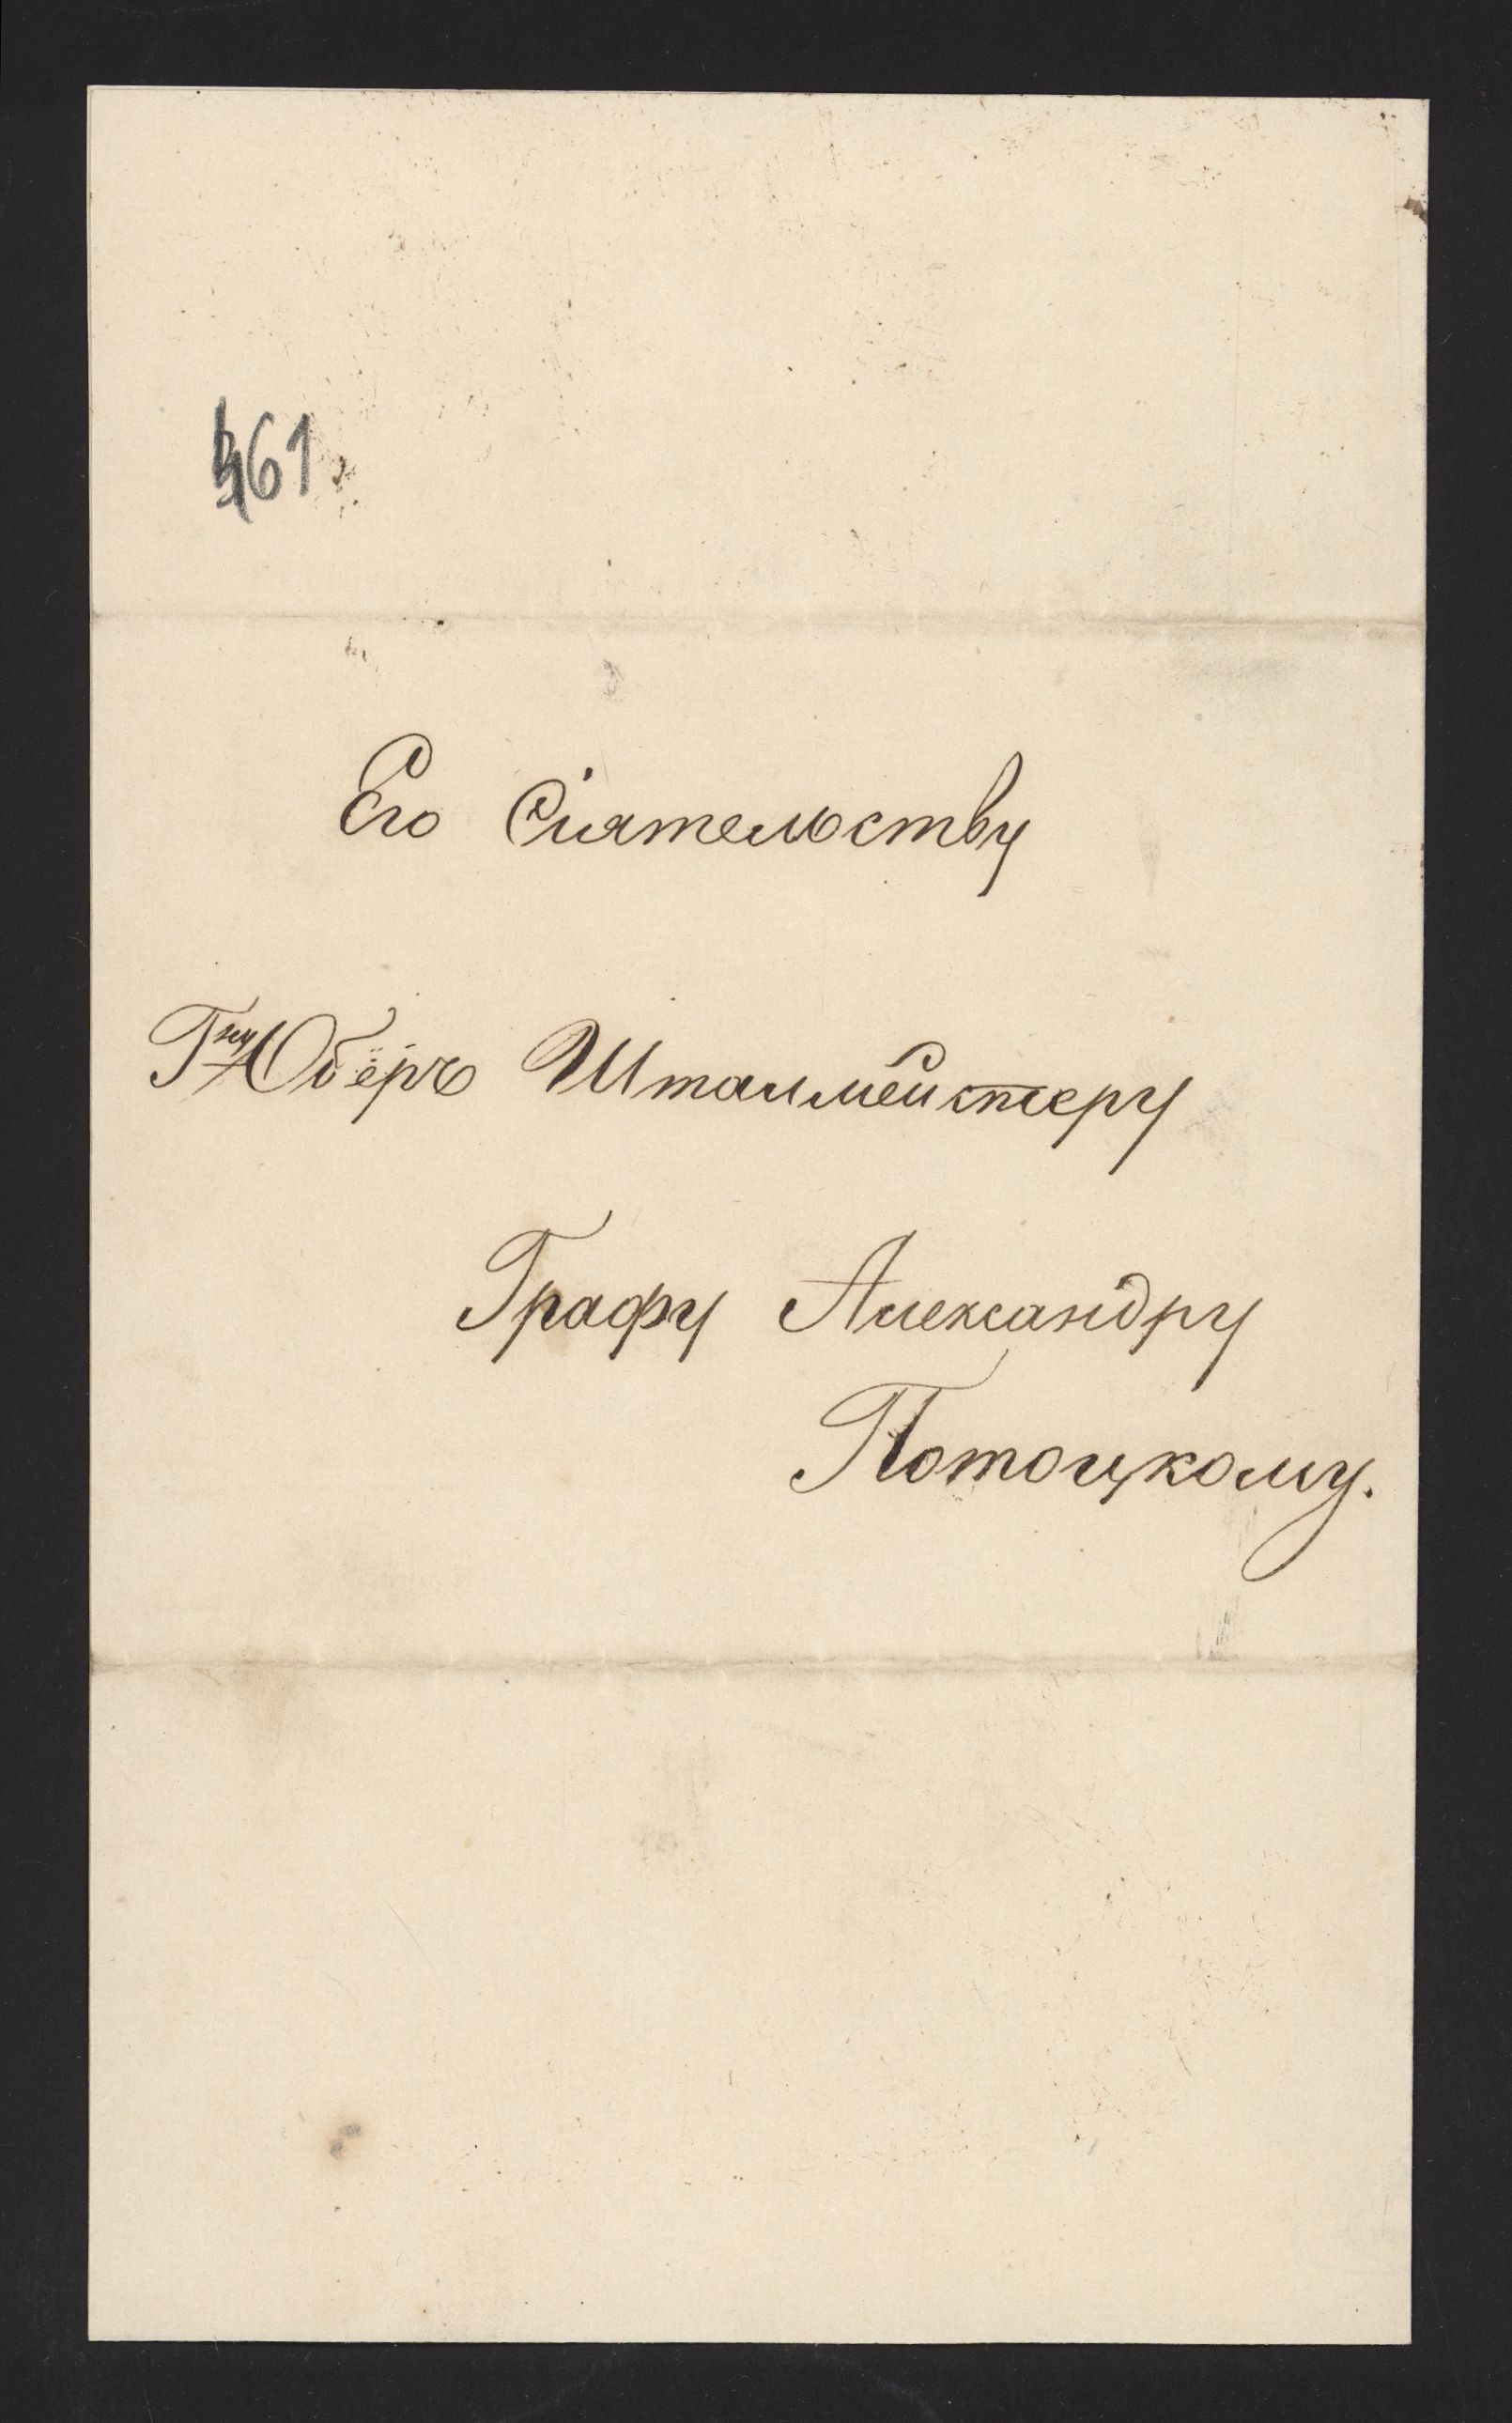 461
Его Сіятельству
Гну Обёръ Шталмейстеру
Графу Александру
Потоцкому.